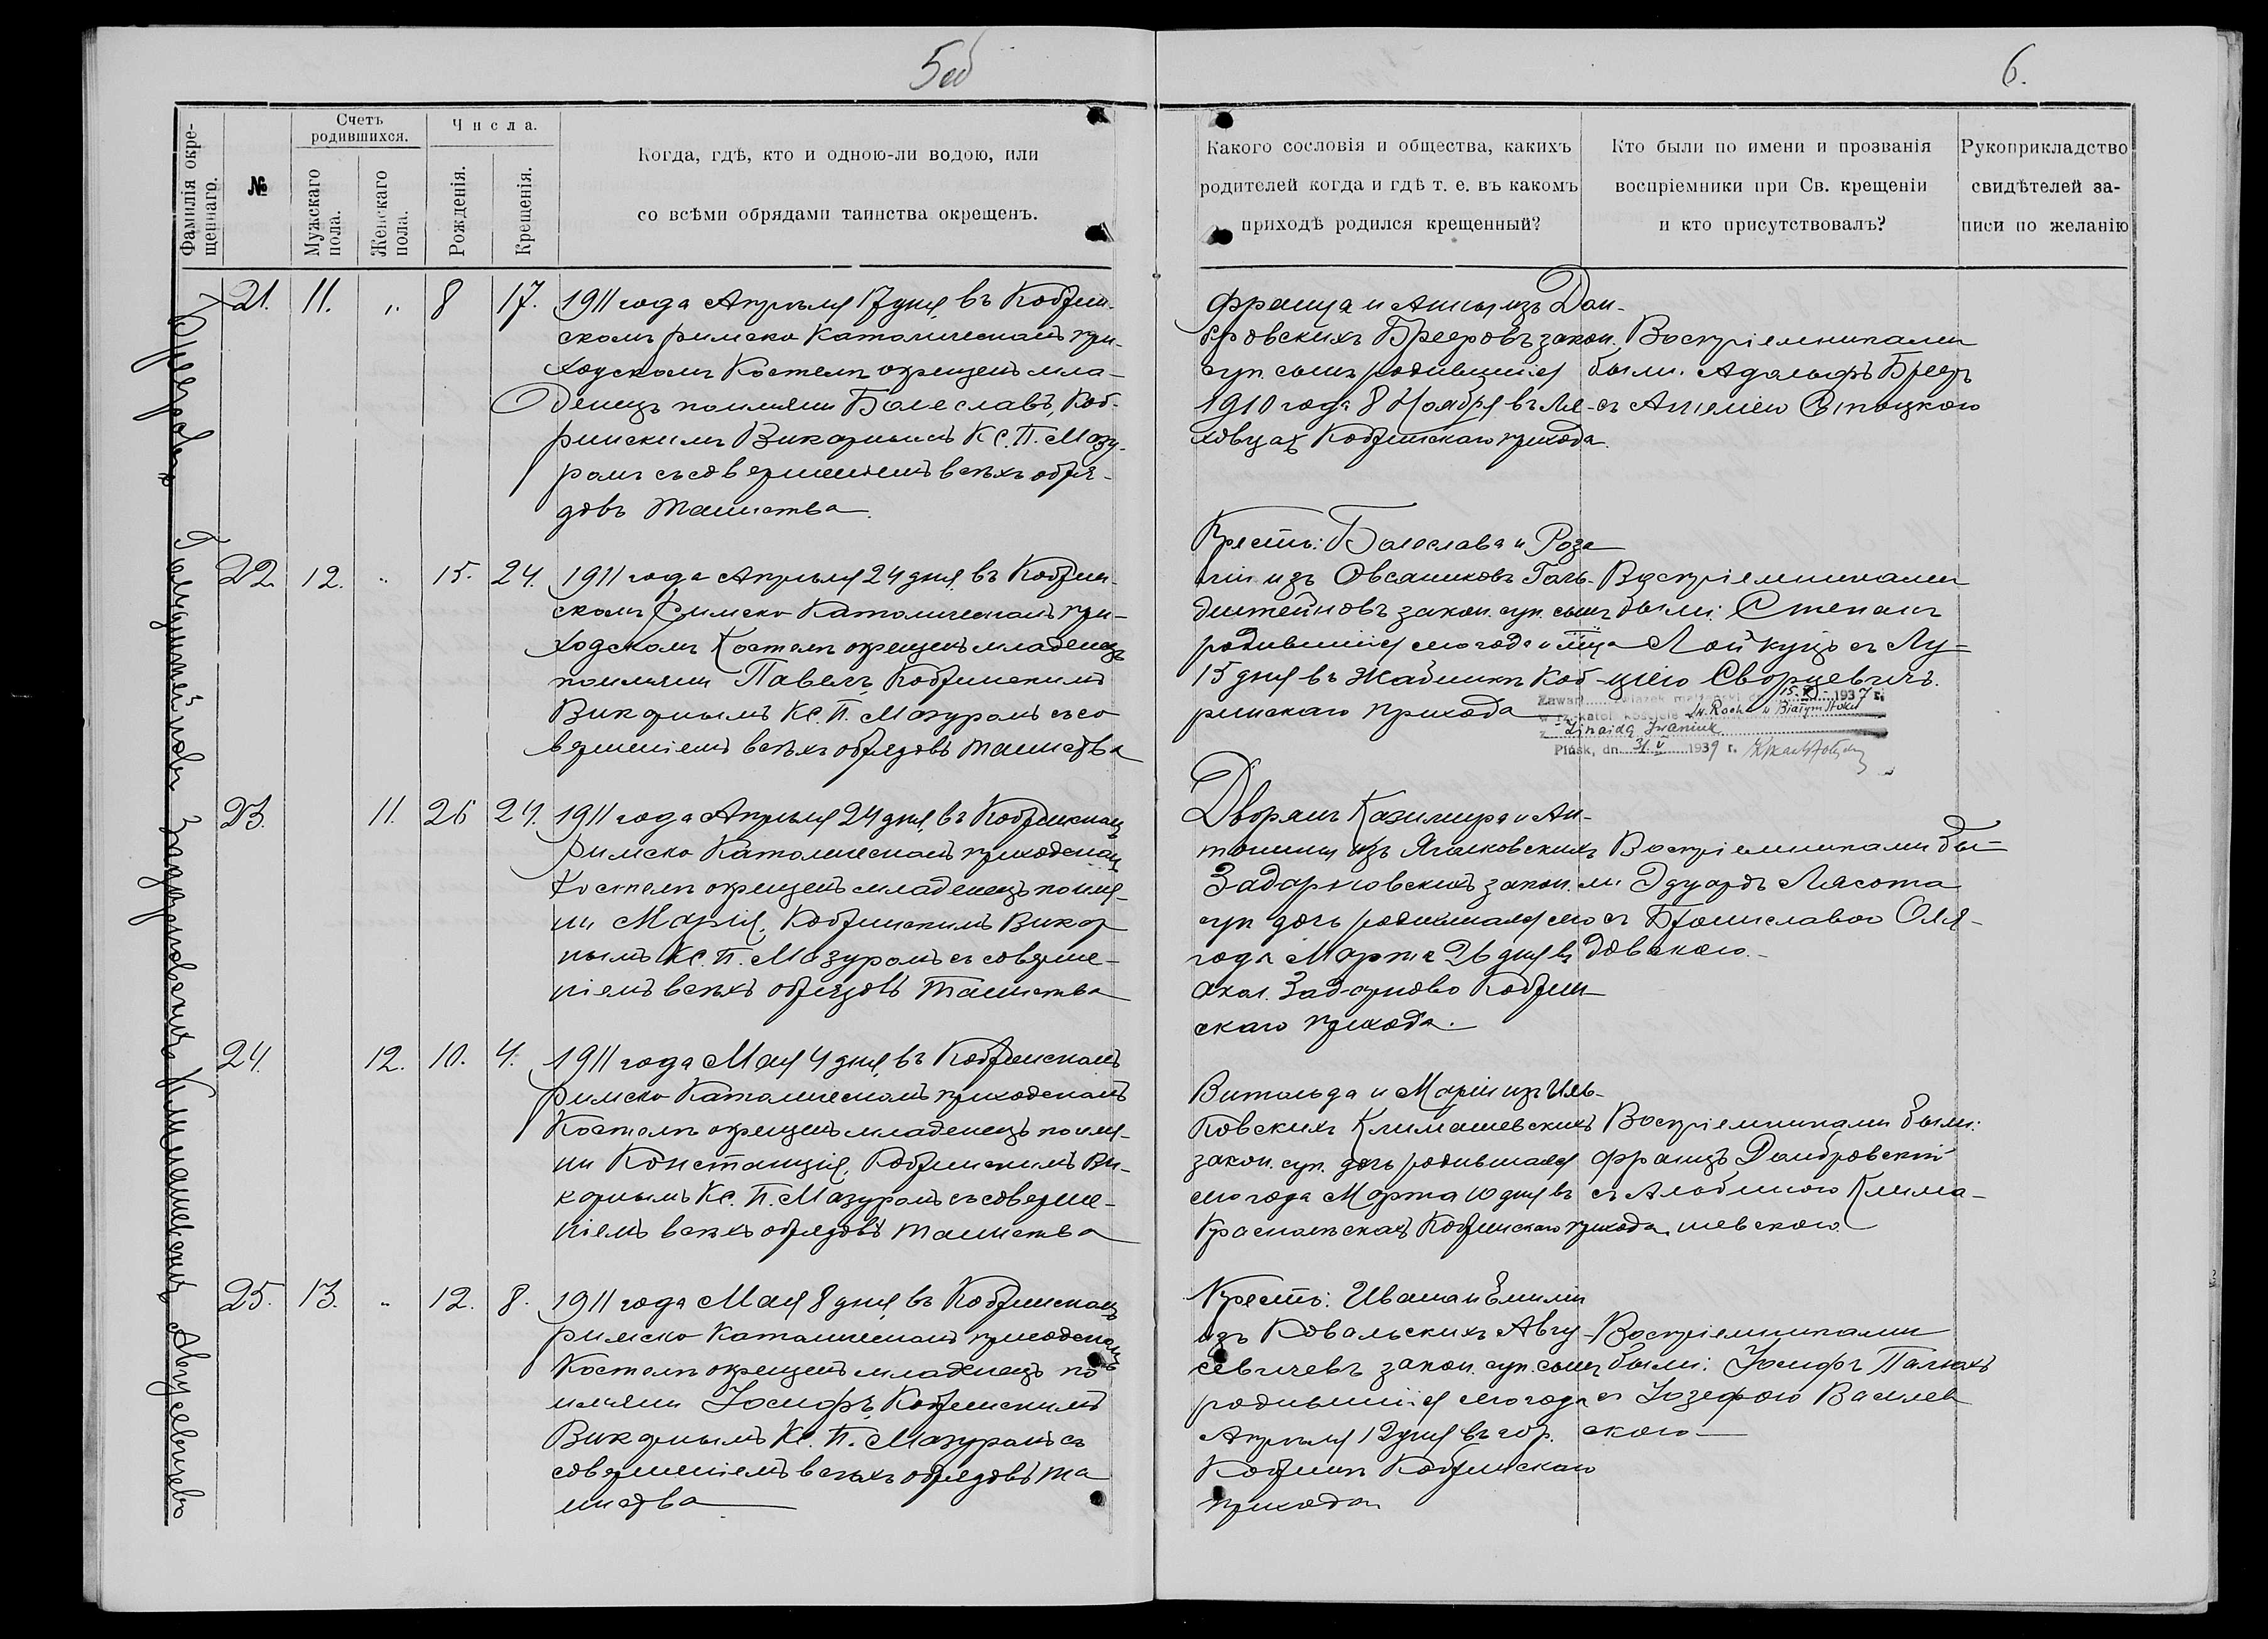 5об
6.
Фамилія окре-
щеннаго.
№
Счетъ
родившихся.
Мужскаго
пола.
Женскаго
пола.
Числа.
Рожденія.
Крещенія.
Когда, гдѣ, кто и одною-ли водою, или
со всѣми обрядами таинства окрещенъ.
Какого сословія и общества, какихъ
родителей когда и гдѣ т. е. въ какомъ
приходѣ родился крещенный?
Кто были по имени и прозванія
воспріемники при Св. крещеніи
и кто присутствовалъ?
Рукоприкладство
свидѣтелей за-
писи по желанію
21. 11. „ 8 17.
1911 года Апрѣля 17 дня, въ Кобрин-
скомъ римско Католическомъ при-
ходскомъ Костелѣ окрещенъ мла-
денецъ по имени Болеславъ, Коб-
ринскимъ Викарнымъ Кс. П. Мазу-
ромъ съ совершеніемъ всѣхъ обря-
довъ таинства
Франца и Анны изъ Дом-
бровскихъ Брееровъ закон.
суп. сынъ родившійся
1910 года 8 Ноября въ Ля-
ховцахъ Кобринскаго прихода.
Воспріемниками
были: Адольфъ Брееръ
съ
22. 12. „ 15. 24.
1911 года Апрѣля 24 дня, въ Кобрин-
скомъ Римско Католическомъ при-
ходскомъ Костелѣ окрещенъ младенецъ
по имени Павелъ, Кобринскимъ
Викарнымъ Кс. П. Мазуромъ съ со
вершеніемъ всѣхъ обрядовъ таинства
Крестъ: Болеслава и Роза
ліи изъ ОвсяниковъГоль-
дштейновъ закон. суп. сынъ
родившійся сего года и м-ца
15 дня въ Жабинкѣ Коб-
ринскаго прихода
Воспріемниками
были: Степанъ
Лойкуцъ съ Лу-
ціею Сворцевичъ.
Zawarł związek małżeński dn. 15. 1937 r.
w rz.-katol. kościele św. Rocha w Białymstoku
z Zinaidą Iwaniuk
Pińsk, dn. 31. V 1939 r.
23. 11. 26 24.
1911 года Апрѣля 24 дня, въ Кобринскомъ
Римско Католическомъ приходскомъ
Костелѣ окрещенъ младенецъ по име-
ни Марія, Кобринскимъ Викар
нымъ Кс. П. Мазуромъ съ соверше-
ніемъ всѣхъ обрядовъ таинства
Дворянъ Казимира и Ан-
тонины изъ Ячковскихъ
Задарновскихъ закон.
суп дочь родившаяся сего
года Марта 26 дня въ
окол. Задарново Кобрин
скаго прихода.
Воспріемниками бы-
ли Эдуардъ Лясота
съ Брониславою Оля-
довскою.
24. 12. 10. 4.
1911 года Мая 4 дня, въ Кобринскомъ
Римско Католическомъ приходскомъ
Костелѣ окрещенъ младенецъ по име-
ни Констанція, Кобринскимъ Ви-
карнымъ Кс. П. Мазуромъ съ соверше-
ніемъ всѣхъ обрядовъ таинства
Витольда и Маріи изъ Иль-
ковскихъ Климашевскихъ
закон. суп. дочь родившаяся
сего года Марта 10 дня въ
Кобринскаго прихода
Воспріемниками были:
Францъ Домбровскій
съ Альбиною Клима-
шевскою.
25. 13. „ 12. 8.
1911 года Мая 8 дня, въ Кобринскомъ
римско Католическомъ приходскомъ
Костелѣ окрещенъ младенецъ по
имени Іосифъ, Кобринскимъ
Викарнымъ Кс. П. Мазуромъ съ
совершеніемъ всѣхъ обрядовъ та
инства
Крестъ: Ивана и Емиліи
изъ Ковальскихъ Авгу-
севичевъ закон. суп. сынъ
родившійся сего года
Апрѣля 12 дня въ гор.
Кобринѣ Кобринскаго
прихода
Воспріемниками
были: Іосифъ
съ Іозефою Василев
скою
Брееровъ
Гольдштейновъ
Задарновскихъ
Климашевскихъ
Авгусевичевъ